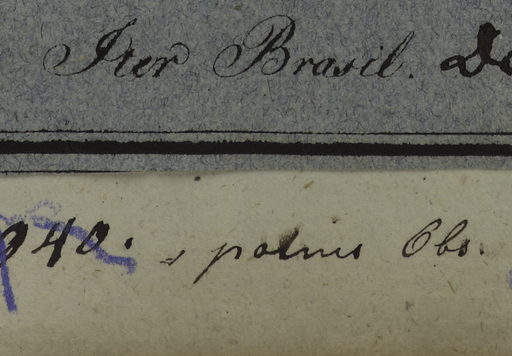 Iter Brasil.
940. palmis Obs.